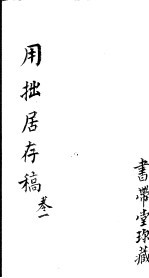 書帶堂珍藏
用拙居存稿
卷一